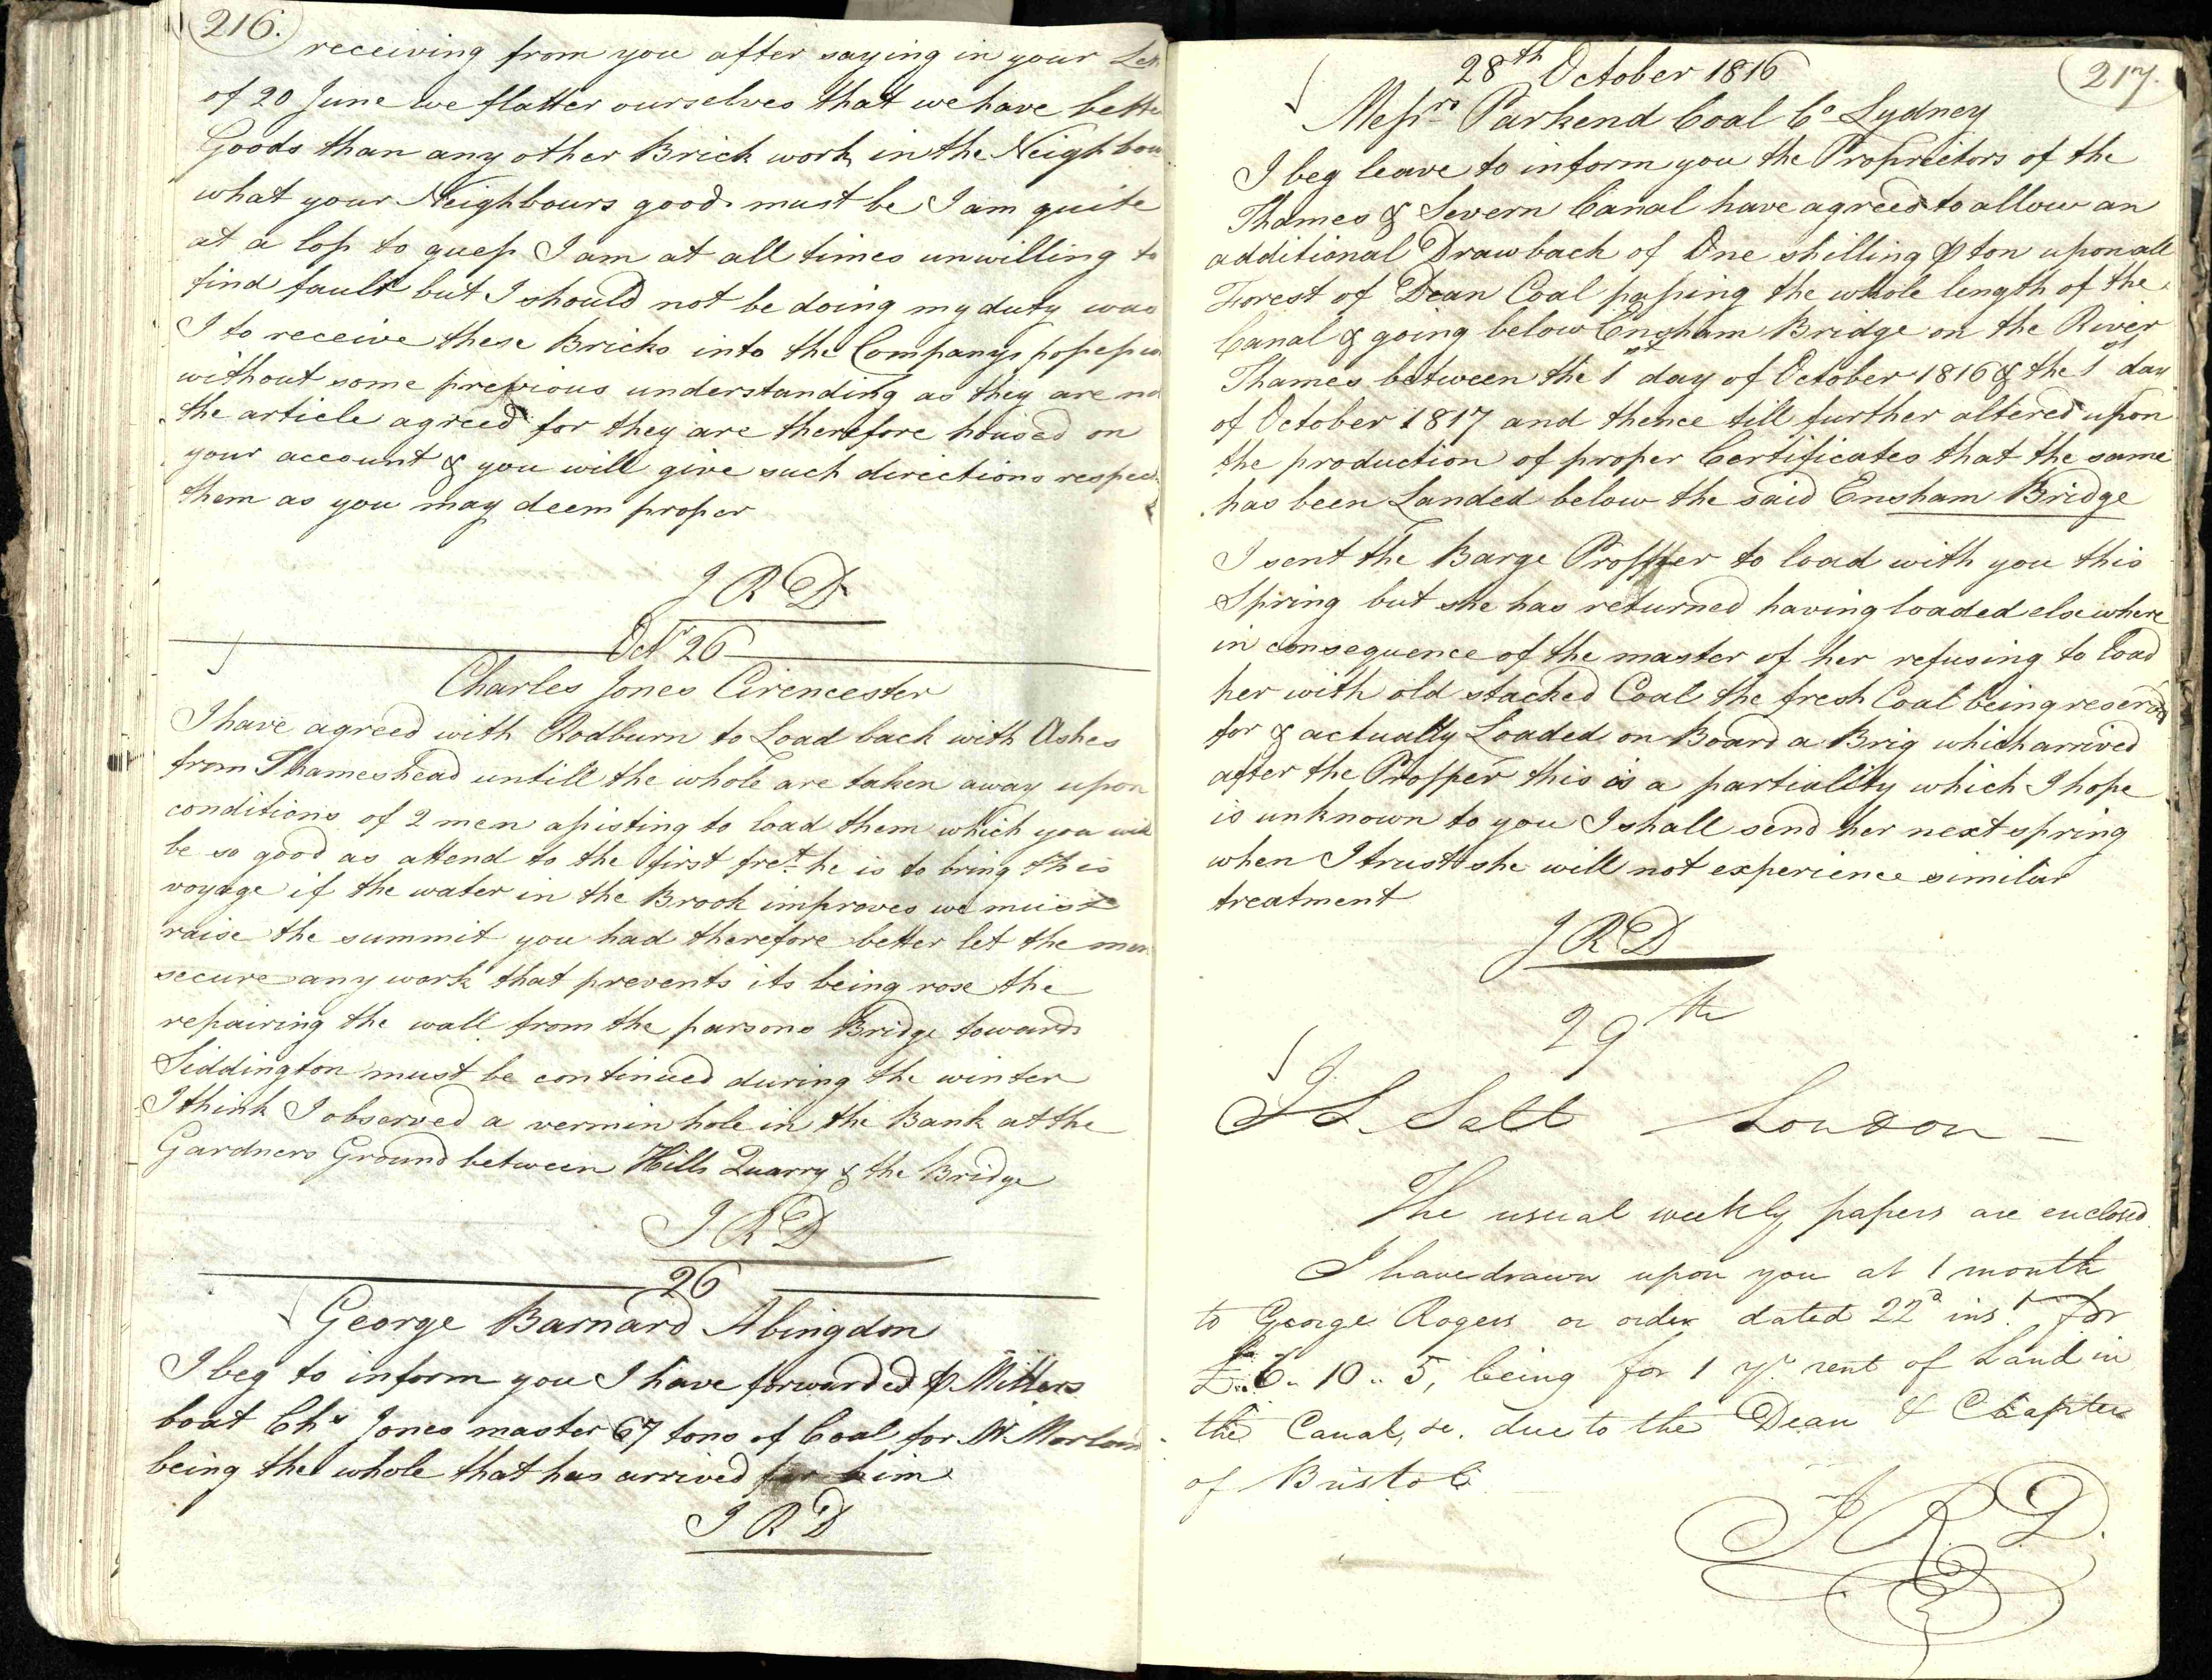 216.
receiving from you after saying in your
of 20 June we flatter ourselves that we have bette
Goods than any other Brick work in the Neighbou
what your Neighbours good must be I am quite
at a loss to guess I am at all times unwilling to
find fault but I should not be doing my duty was
I to receive these Bricks into the Companys possessio
without some previous understanding as they are no
the article agreed for they are therefore housed on
your account & you will give such directions respect
them as you may deem proper
J R D
Octr 26
Charles Jones Cirencester
I have agreed with Rodburn to Load back with Ashes
from Thameshead untill the whole are taken away upon
conditions of 2 men assisting to load them which you will
be so good as attend to the first fret. he is to bring this
voyage if the water in the Brook improves we must
raise the summit you had therefore better let the men
secure any work that prevents its being rose the
repairing the wall from the parsons Bridge towards
Siddington must be continued during the winter
I think I observed a vermin hole in the Bank at the
Gardners Ground between Hills Quarry & the Bridge
J R D
26
George Barnard Abingdon
I beg to inform you I have forwarded ⅌ Millers
boat Chs Jones master 67 tons of Coal for Mr Morland
being the whole that has arrived for him
J R D
217.
28th October 1816
Messrs Parkend Coal Co Lydney
I beg leave to inform you the Proprietors of the
Thames & Severn Canal have agreed to allow an
additional Drawback of One shilling ⅌ ton upon all
Forest of Dean Coal passing the whole length of the
Canal & going below Ensham Bridge on the River
Thames between the 1st day of October 1816 & the 1st day
of October 1817 and thence till further altered upon
the production of proper Certificates that the same
has been Landed below the said Ensham Bridge
I sent the Barge Prosper to load with you this
Spring but she has returned having loaded elsewhere
in consequence of the master of her refusing to load
her with old stacked Coal the fresh Coal being reserved
for & actually Loaded on Board a Brig which arrived
after the Prosper this is a partiality which I hope
is unknown to you I shall send her next spring
when I trust she will not experience similar
treatment
J R D
29th
J. L. Salt London —
The usual weekly papers are enclosed.
I have drawn upon you at 1 month
to George Rogers or order dated 22d inst. for
£6 .. 10 .. 5, being for 1 yr. rent of Land in
the Canal, &c. due to the Dean & Chapter
of Bristol
J R D.